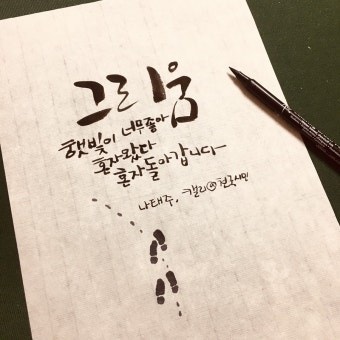 그리움
햇빛이 너무좋아
혼자왔다
혼자돌아갑니다
나태주, 캘리@천국시민